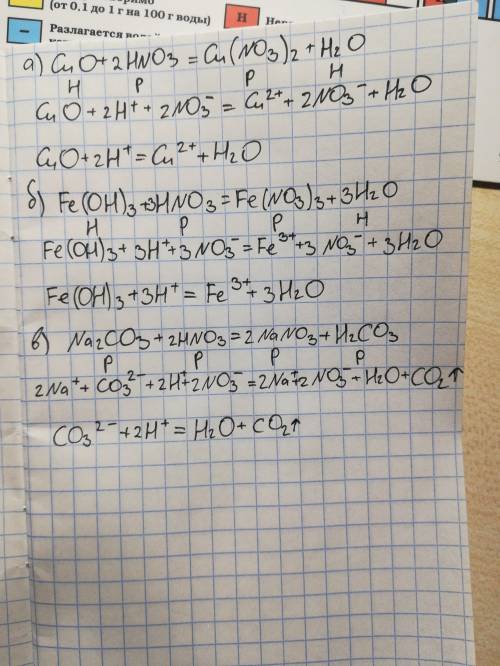 (от 0.1 до 1 г на 100 г воды)
Н
–
Разлагается
а) CuO + 2HNO3 = Cu(NO3)2 + H2O
Н Р Р Н
CuO + 2H⁺ + 2NO3⁻ = Cu²⁺ + 2NO3⁻ + H2O
CuO + 2H⁺ = Cu²⁺ + H2O
б) Fe(OH)3 + 3HNO3 = Fe(NO3)3 + 3H2O
Н Р Р Н
Fe(OH)3 + 3H⁺ + 3NO3⁻ = Fe³⁺ + 3NO3⁻ + 3H2O
Fe(OH)3 + 3H⁺ = Fe³⁺ + 3H2O
в) Na2CO3 + 2HNO3 = 2NaNO3 + H2CO3
Р Р Р Р
2Na⁺ + CO3²⁻ + 2H⁺ + 2NO3⁻ = 2Na⁺ + 2NO3⁻ + H2O + CO2↑
CO3²⁻ + 2H⁺ = H2O + CO2↑